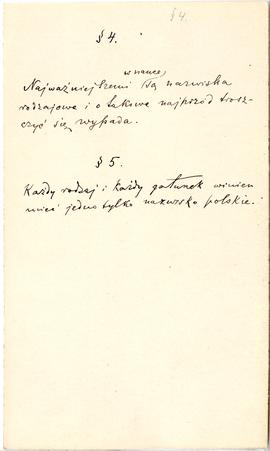 § 4.
§ 4.
w nauce,
Najważniejszemi są nazwiska
rodzajowe i o takowe najprzód trosz-
czyć się wypada.
§ 5.
Każdy rodzaj i każdy gatunek winien
mieć jedno tylko nazwisko polskie.